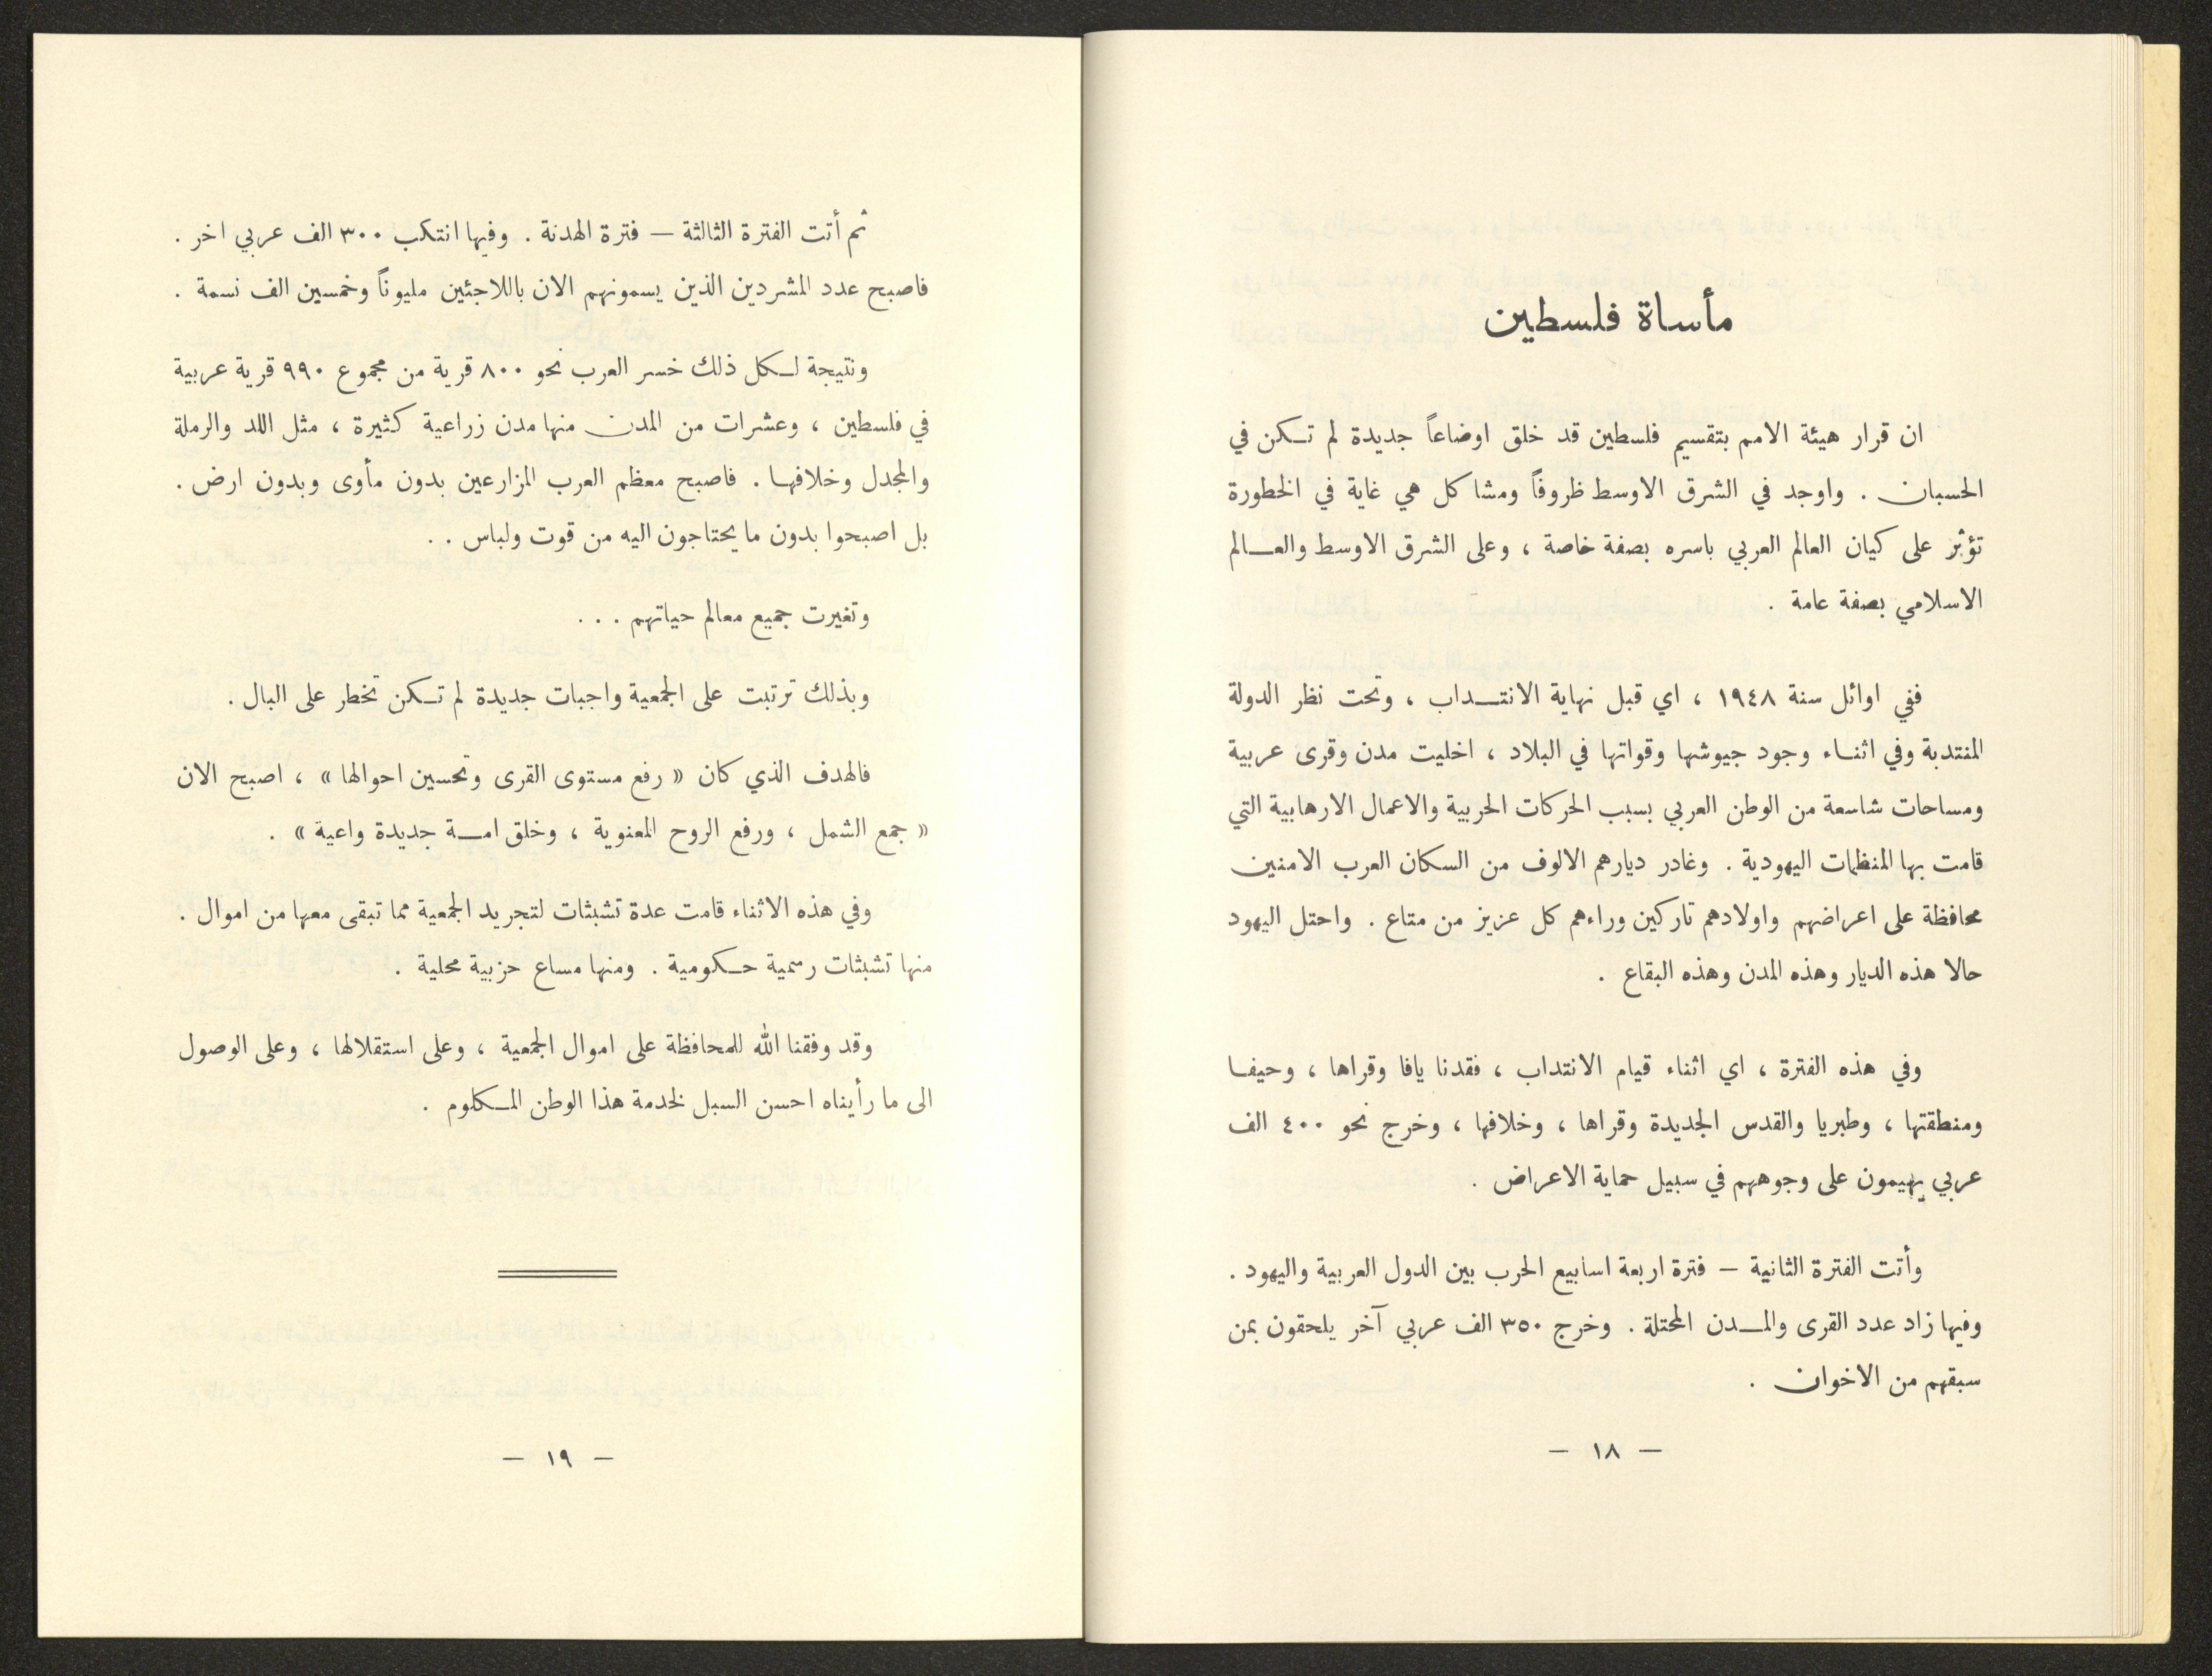 مأساة فلسطين
ان قرار هيئة الامم بتقسيم فلسطين قد خلق اوضاعاً جديدة لم تكن في
الحسبان . واوجد في الشرق الاوسط ظروفاً ومشاكل هي غاية في الخطورة
تؤثر على كيان العالم العربي باسره بصفة خاصة ، وعلى الشرق الاوسط والعالم
الاسلامي بصفة عامة .
ففي اوائل سنة ١٩٤٨ ، اي قبل نهاية الانتداب ، وتحت نظر الدولة
المنتدبة وفي اثناء وجود جيوشها وقواتها في البلاد ، اخليت مدن وقرى عربية
ومساحات شاسعة من الوطن العربي بسبب الحركات الحربية والاعمال الارهابية التي
قامت بها المنظمات اليهودية . وغادر ديارهم الالوف من السكان العرب الامنين
محافظة على اعراضهم واولادهم تاركين وراءهم كل عزيز من متاع . واحتل اليهود
حالا هذه الديار وهذه المدن وهذه البقاع .
وفي هذه الفترة ، اي اثناء قيام الانتداب ، فقدنا يافا وقراها ، وحيفا
ومنطقتها ، وطبريا والقدس الجديدة وقراها ، وخلافها ، وخرج نحو ٤٠٠ الف
عربي يهيمون على وجوههم في سبيل حماية الاعراض .
وأتت الفترة الثانية – فترة اربعة اسابيع الحرب بين الدول العربية واليهود .
وفيها زاد عدد القرى والمدن المحتلة . وخرج ٣٥٠ الف عربي آخر يلحقون بمن
سبقهم من الاخوان .
– ١٨ –
ثم أتت الفترة الثالثة – فترة الهدنة . وفيها انتكب ٣٠٠ الف عربي اخر .
فاصبح عدد المشردين الذين يسمونهم الان باللاجئين مليوناً وخمسين الف نسمة .
ونتيجة لكل ذلك خسر العرب نحو ٨٠٠ قرية من مجموع ٩٩٠ قرية عربية
في فلسطين ، وعشرات من المدن منها مدن زراعية كثيرة ، مثل اللد والرملة
والمجدل وخلافها . فاصبح معظم العرب المزارعين بدون مأوى وبدون ارض .
بل اصبحوا بدون ما يحتاجون اليه من قوت ولباس . .
وتغيرت جميع معالم حياتهم . . .
وبذلك ترتبت على الجمعية واجبات جديدة لم تكن تخطر على البال .
فالهدف الذي كان « رفع مستوى القرى وتحسين احوالها » ، اصبح الان
« جمع الشمل ، ورفع الروح المعنوية ، وخلق امة جديدة واعية » .
وفي هذه الاثناء قامت عدة تشبثات لتجريد الجمعية مما تبقى معها من اموال .
منها تشبثات رسمية حكومية . ومنها مساع حزبية محلية .
وقد وفقنا الله للمحافظة على اموال الجمعية ، وعلى استقلالها ، وعلى الوصول
الى ما رأيناه احسن السبل لخدمة هذا الوطن المكلوم .
– ١٩ –